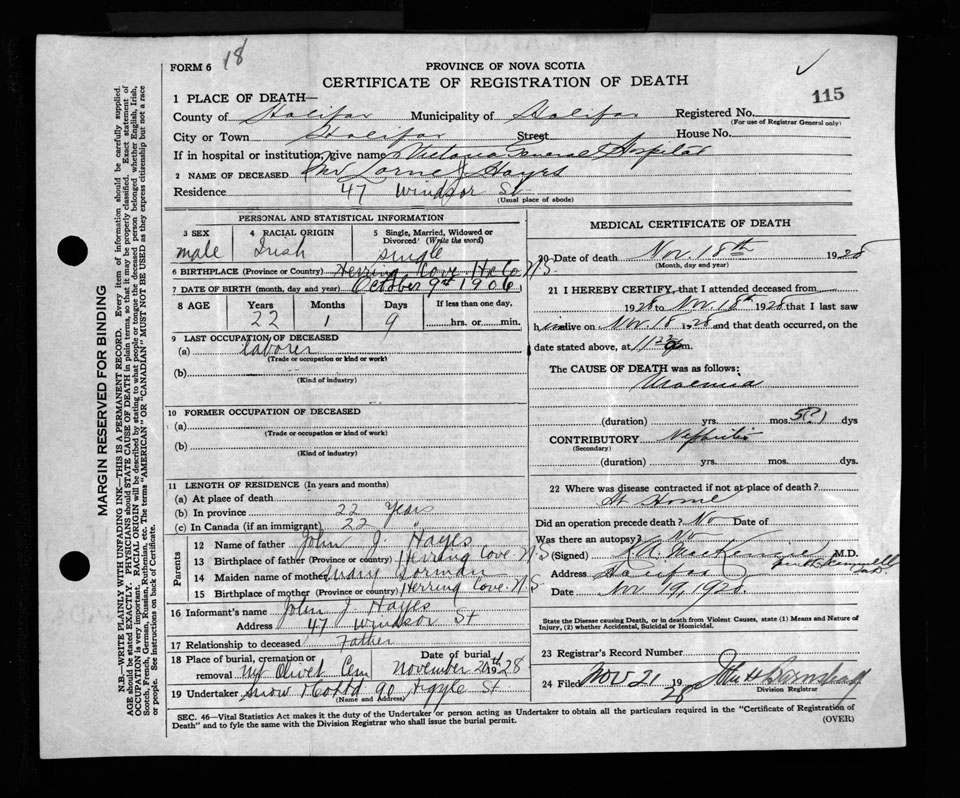 FORM 6
18
PROVINCE OF NOVA SCOTIA
CERTIFICATE OF REGISTRATION OF DEATH
115
1 PLACE OF DEATH—
County of Halifax Municipality of Halifax Registered No.
(For use of Registrar General only)
City or Town Halifax Street House No.
If in hospital or institution, give name Victoria General Hospital
2 NAME OF DECEASED Lorne J Hayes
Residence 47 Windsor St
(Usual place of abode)
PERSONAL AND STATISTICAL INFORMATION
3 SEX
male
4 RACIAL ORIGIN
Irish
5 Single, Married, Widowed or Divorced? (Write the word)
single
6 BIRTHPLACE (Province or Country) Herring Cove Hx Co N.S
7 DATE OF BIRTH (month, day and year) October 9 1906
8 AGE Years Months Days If less than one day,
22 1 9 hrs. or min.
9 LAST OCCUPATION OF DECEASED
(a) laborer
(Trade or occupation or kind or work)
(b)
(Kind of industry)
10 FORMER OCCUPATION OF DECEASED
(a)
(Trade or occupation or kind or work)
(b)
(Kind of industry)
11 LENGTH OF RESIDENCE (In years and months)
(a) At place of death
(b) In province 22 Years
(c) In Canada (if an immigrant) 22 "
Parents
12 Name of father John J. Hayes
13 Birthplace of father (Province or Country) Herring Cove N.S
14 Maiden name of mother Mary Gorman
15 Birthplace of mother (Province or Country) Herring Cove N.S
16 Informant's name John J. Hayes
Address 47 Windsor St
17 Relationship to deceased Father
18 Place of burial, cremation or removal Mt Olivet Cem
Date of burial November 20th 1928
19 Undertaker Snow & Co Ltd 90 Argyle St
(Name and Address)
MEDICAL CERTIFICATE OF DEATH
20 Date of death Nov. 18th 1928
(Month, day and year)
21 I HEREBY CERTIFY, that I attended deceased from
1928 to Nov. 18th 1928 that I last saw
him alive on Nov 18 1928 and that death occurred, on the
date stated above, at 11 m.
The CAUSE OF DEATH was as follows:
Uraemia
(duration) yrs. mos. 5(?) dys
CONTRIBUTORY Nephritis
(Secondary)
(duration) yrs. mos. dys.
22 Where was disease contracted if not at place of death?
At Home
Did an operation precede death? No Date of
Was there an autopsy? No
(Signed) MacKenzie M.D.
Address Halifax
Date Nov 19, 1928.
State the Disease causing Death, or in death from Violent Causes, state (1) Means and Nature of Injury, (2) whether Accidental, Suicidal or Homicidal.
23 Registrar's Record Number
24 Filed NOV 21 1928 John H Barnstead
Division Registrar
SEC. 46—Vital Statistics Act makes it the duty of the Undertaker or person acting as Undertaker to obtain all the particulars required in the "Certificate of Registration of
Death" and to fyle the same with the Division Registrar who shall issue the burial permit.
(OVER)
MARGIN RESERVED FOR BINDING
N.B.—WRITE PLAINLY WITH UNFADING INK—THIS IS A PERMANENT RECORD. Every item of information should be carefully supplied.
AGE should be stated EXACTLY. PHYSICIANS should STATE CAUSE OF DEATH in plain terms, so that it may be properly classified. Exact statement of
OCCUPATION is very important. RACIAL ORIGIN will be described by stating to what people or tongue the deceased person belonged whether English, Irish,
Scotch, French, German, Russian, Ruthenian, etc. The terms "AMERICAN" OR "CANADIAN" MUST NOT BE USED as they express citizenship but not a race
or people. See instructions on back of Certificate.